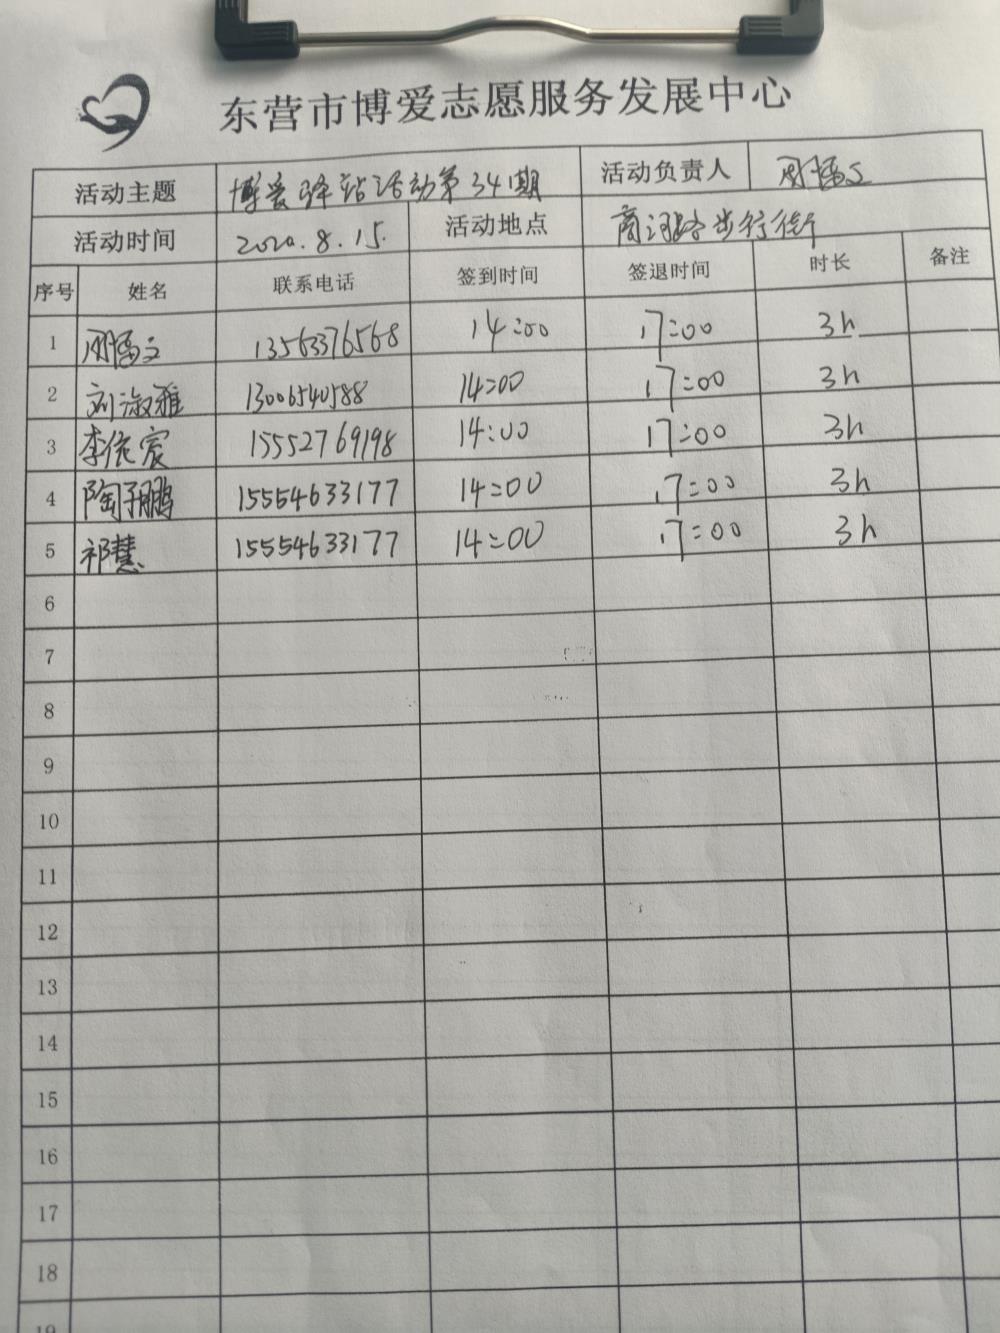 东营市博爱志愿服务发展中心
活动主题 博爱驿站活动第34期 活动负责人
活动时间 2020.8.15. 活动地点 商河路步行街
序号 姓名 联系电话 签到时间 签退时间 时长 备注
1 13563376568 14:00 17:00 3h
2 刘淑雅 13006540588 14:00 17:00 3h
3 李依宸 15552769198 14:00 17:00 3h
4 陶子鹏 15554633177 14:00 17:00 3h
5 祁慧 15554633177 14:00 17:00 3h
6
7
8
9
10
11
12
13
14
15
16
17
18
19